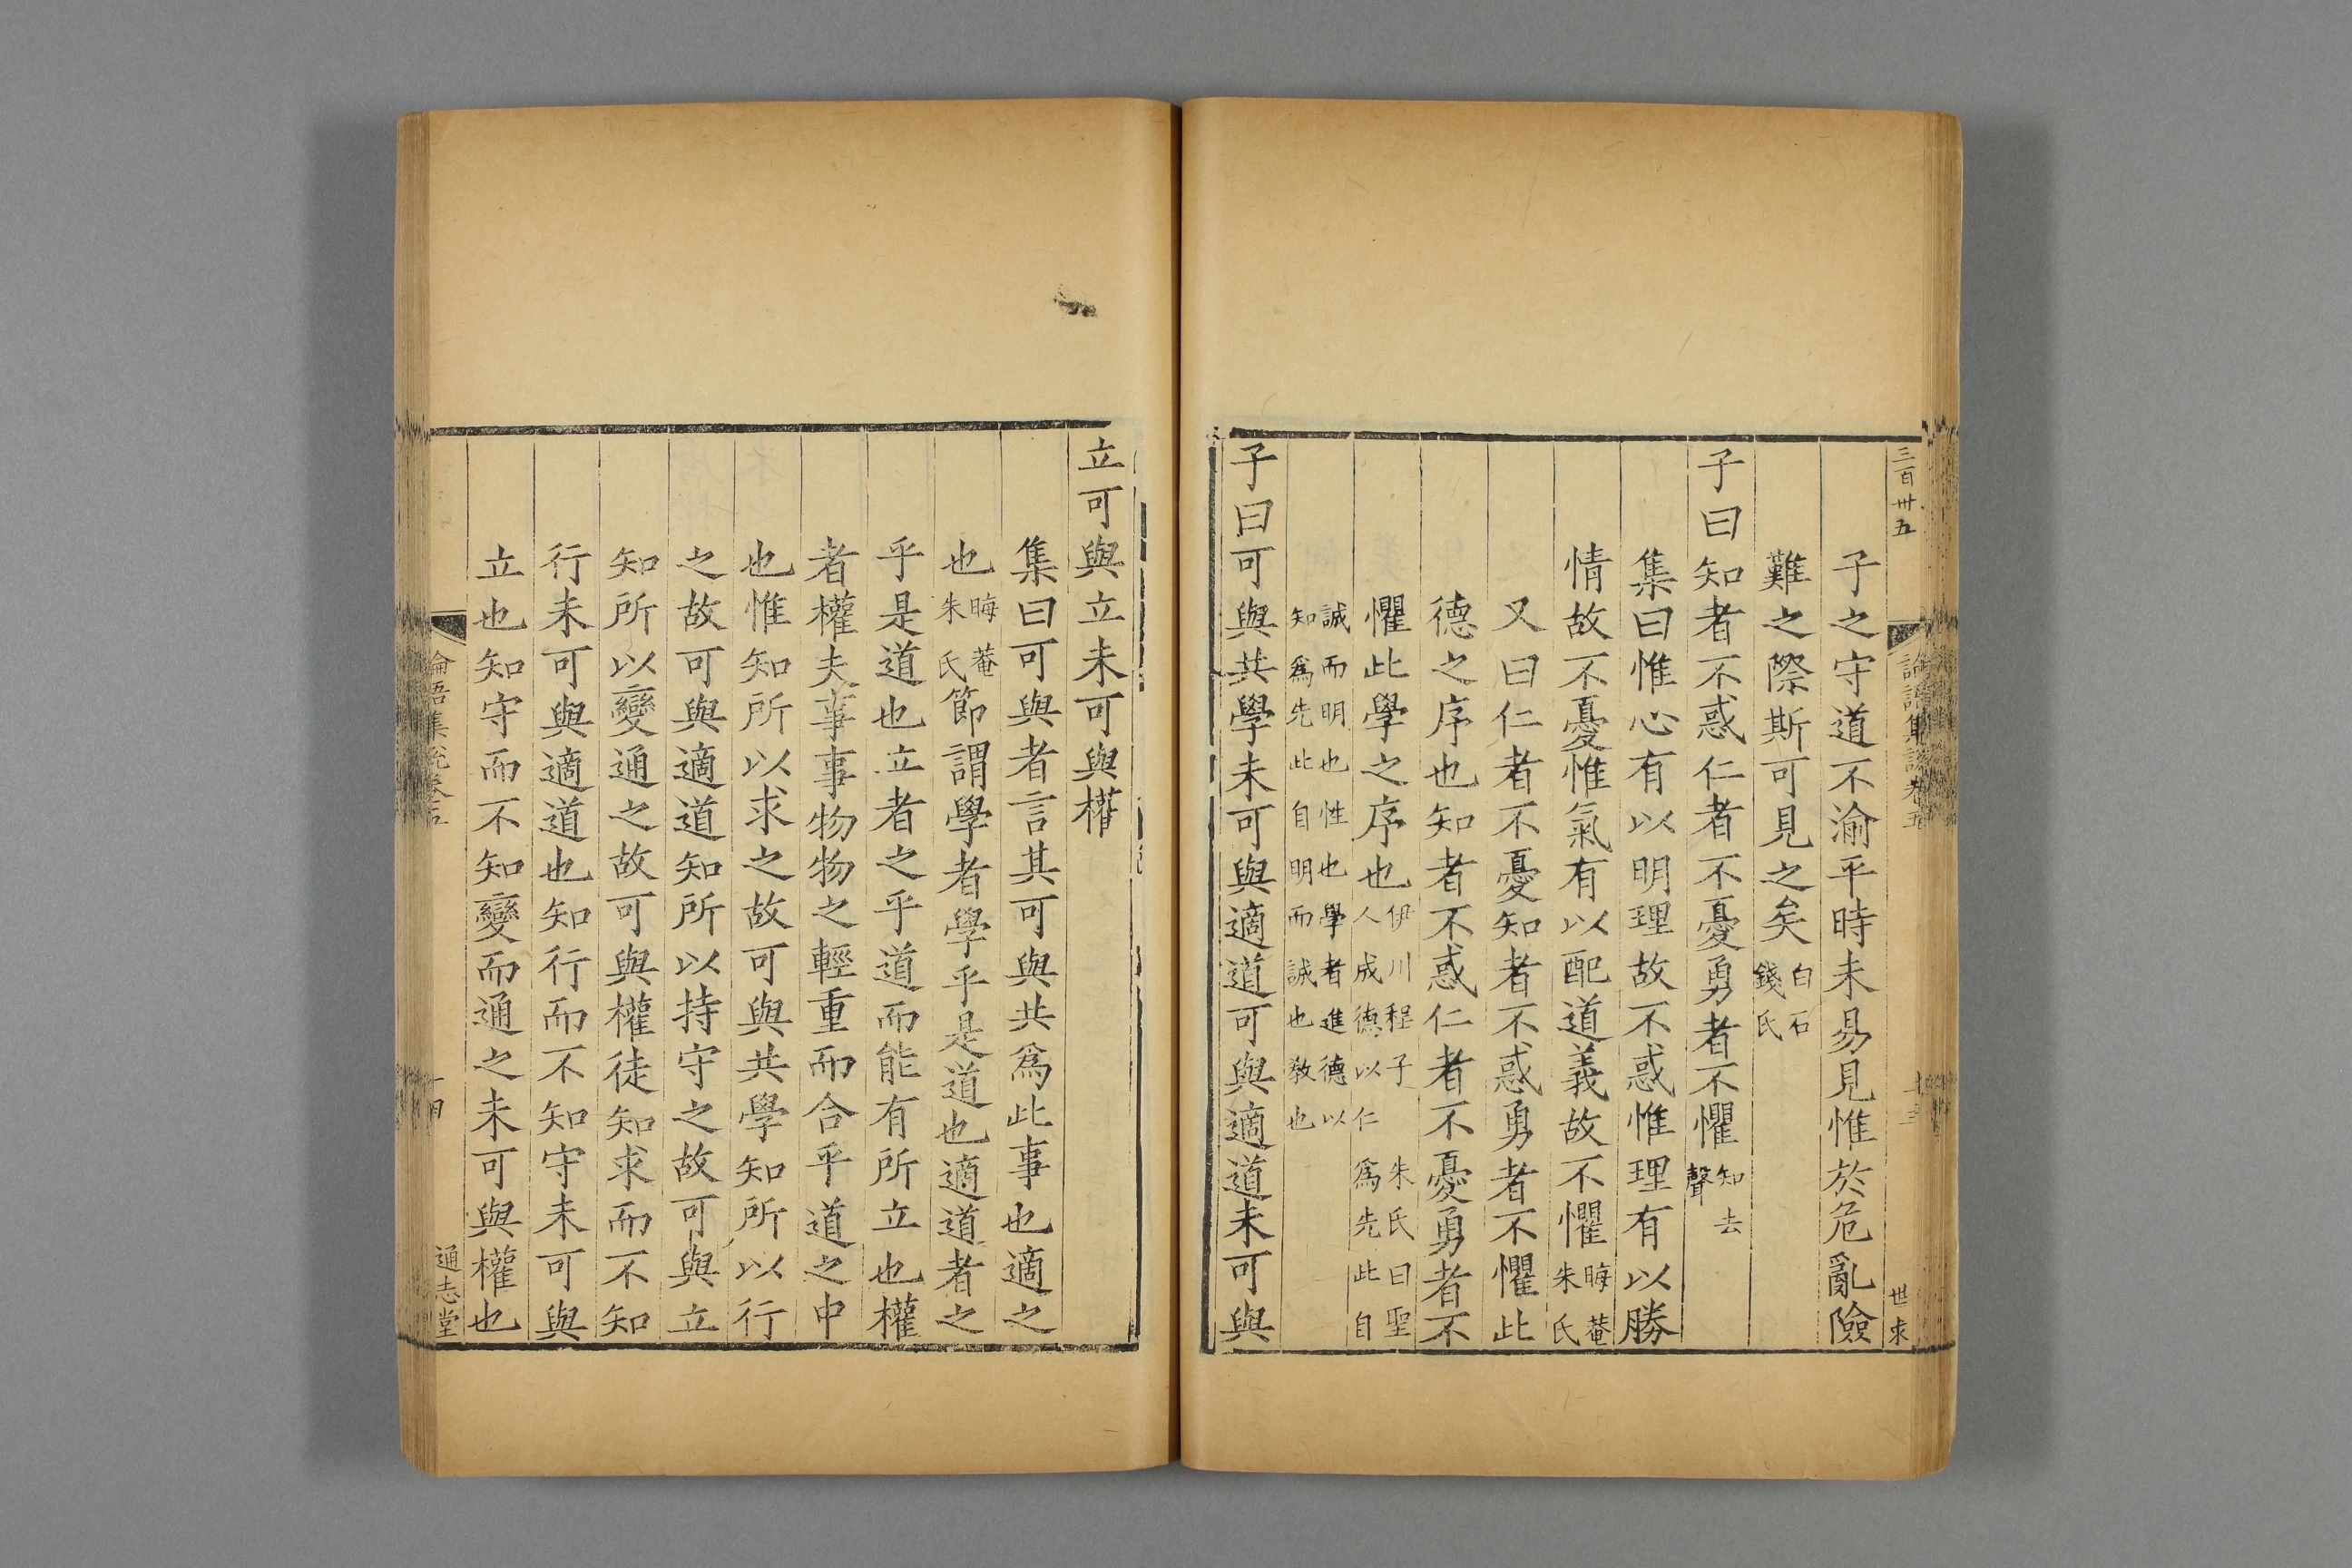 三百卅五
論語集說卷五
十三
世求
子之守道不渝平時未易見惟於危亂險
難之際斯可見之矣白石錢氏
子曰知者不惑仁者不憂勇者不懼知去聲
集曰惟心有以明理故不惑惟理有以勝
情故不憂惟氣有以配道義故不懼晦菴朱氏
又曰仁者不憂知者不惑勇者不懼此
德之序也知者不惑仁者不憂勇者不
懼此學之序也伊川程子朱氏曰聖人成德以仁爲先此自
誠而明也性也學者進德以知爲先此自明而誠也敎也
子曰可與共學未可與適道可與適道未可與
立可與立未可與權
集曰可與者言其可與共爲此事也適之
也晦菴朱氏節謂學者學乎是道也適道者之
乎是道也立者之乎道而能有所立也權
者權夫事事物物之輕重而合乎道之中
也惟知所以求之故可與共學知所以行
之故可與適道知所以持守之故可與立
知所以變通之故可與權徒知求而不知
行未可與適道也知行而不知守未可與
立也知守而不知變而通之未可與權也
論語集說卷五
通志堂